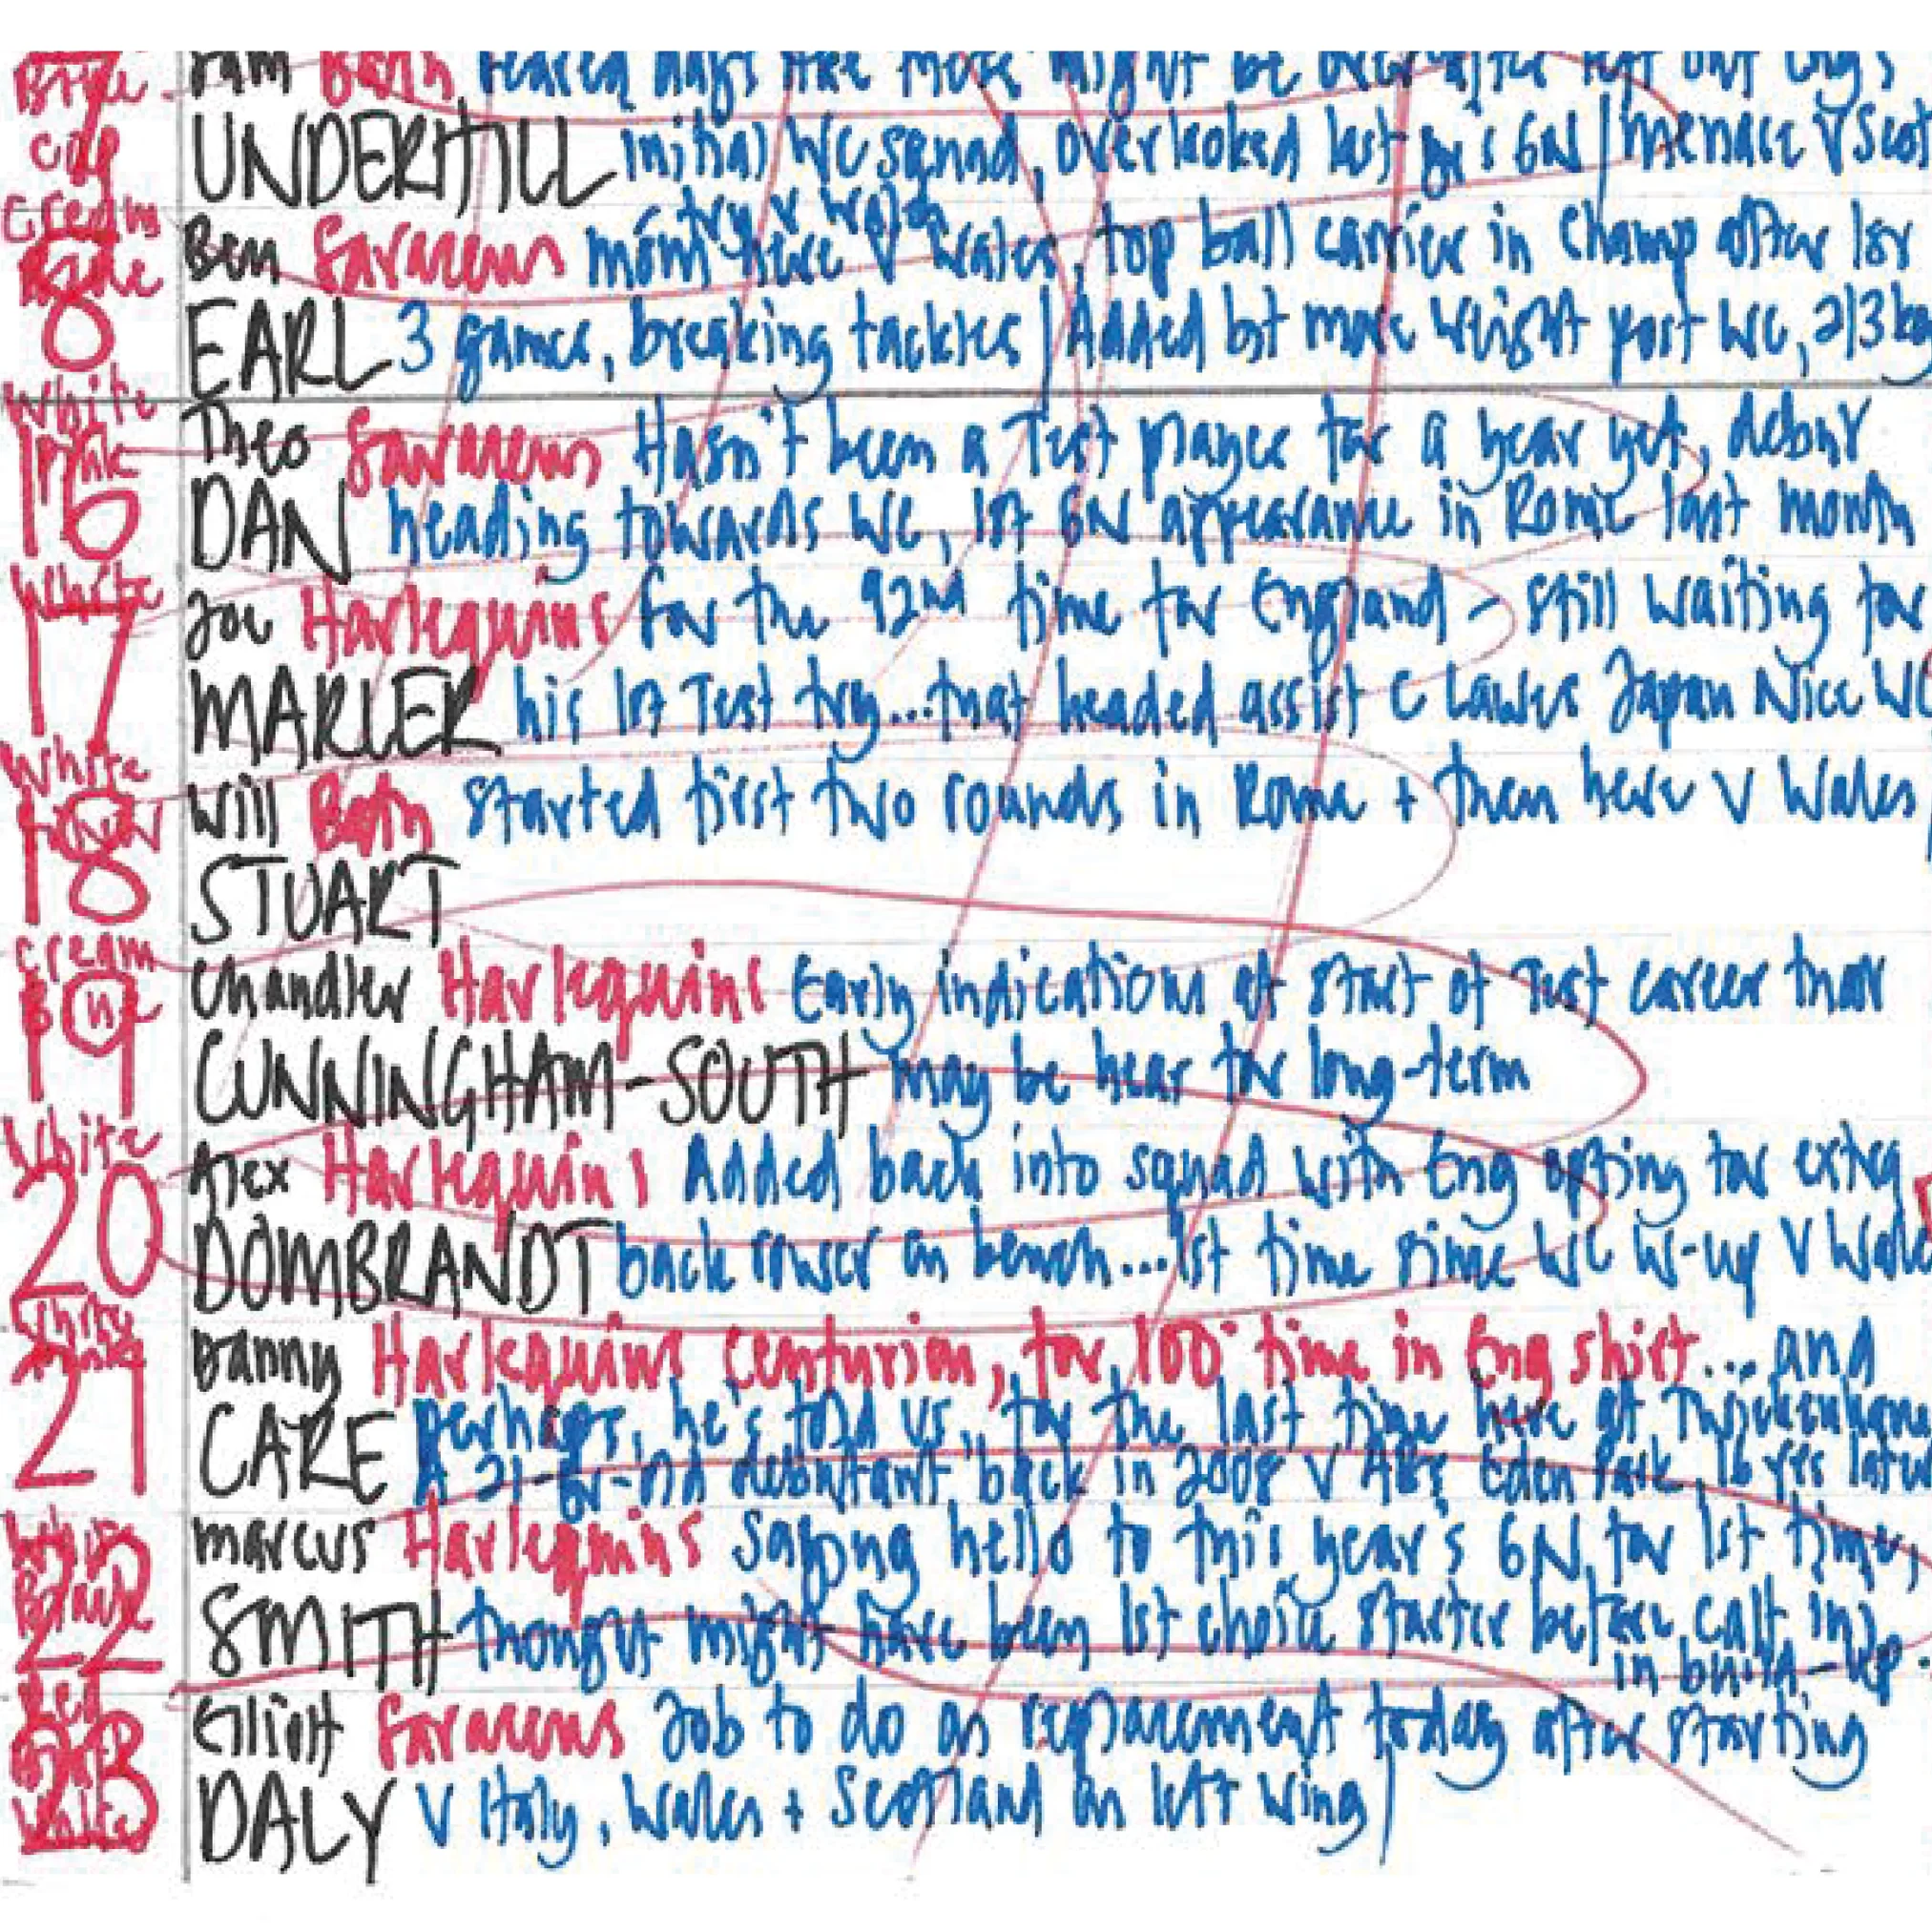 Blue Sam Bath feared days like these might be over after left out Eng's
7 cap UNDERHILL initial WC squad, overlooked last yr's 6N | menace v Scot
Cream try v Wales
Blue Ben Saracens mom here v Wales, top ball carrier in champ after 1st
8 EARL 3 games, breaking tackles | Added bt more weight post WC, 2/3kg
White Theo Saracens Hasn't been a Test player for a year yet, debut
Pink 16 DAN heading towards WC, 1st 6N appearance in Rome last month
White Joe Harlequins for the 92nd time for England - still waiting for
17 MARLER his 1st Test try...that headed assist C Lawes Japan Nice WC
White Will Bath started first two rounds in Rome + then here v Wales
18 STUART
Cream Chandler Harlequins Early indications at start of Test career that
19 CUNNINGHAM-SOUTH may be hear for long-term
White Alex Harlequins Added back into squad with Eng opting for extra
20 DOMBRANDT back rower on bench...1st time since WC w-up v Wales
Danny Harlequins centurion, for 100th time in Eng shirt... and
21 CARE perhaps, he's told us, for the last time here at Twickenham
A 21-yr-old debutant back in 2008 v ABs Eden Park, 16 yrs later
White Marcus Harlequins saying hello to this year's 6N for 1st time,
22 SMITH thought might have been 1st choice starter before calf inj
in build-up.
Red Elliott Saracens Job to do as replacement today after starting
23 White DALY v Italy, Wales + Scotland on left wing |